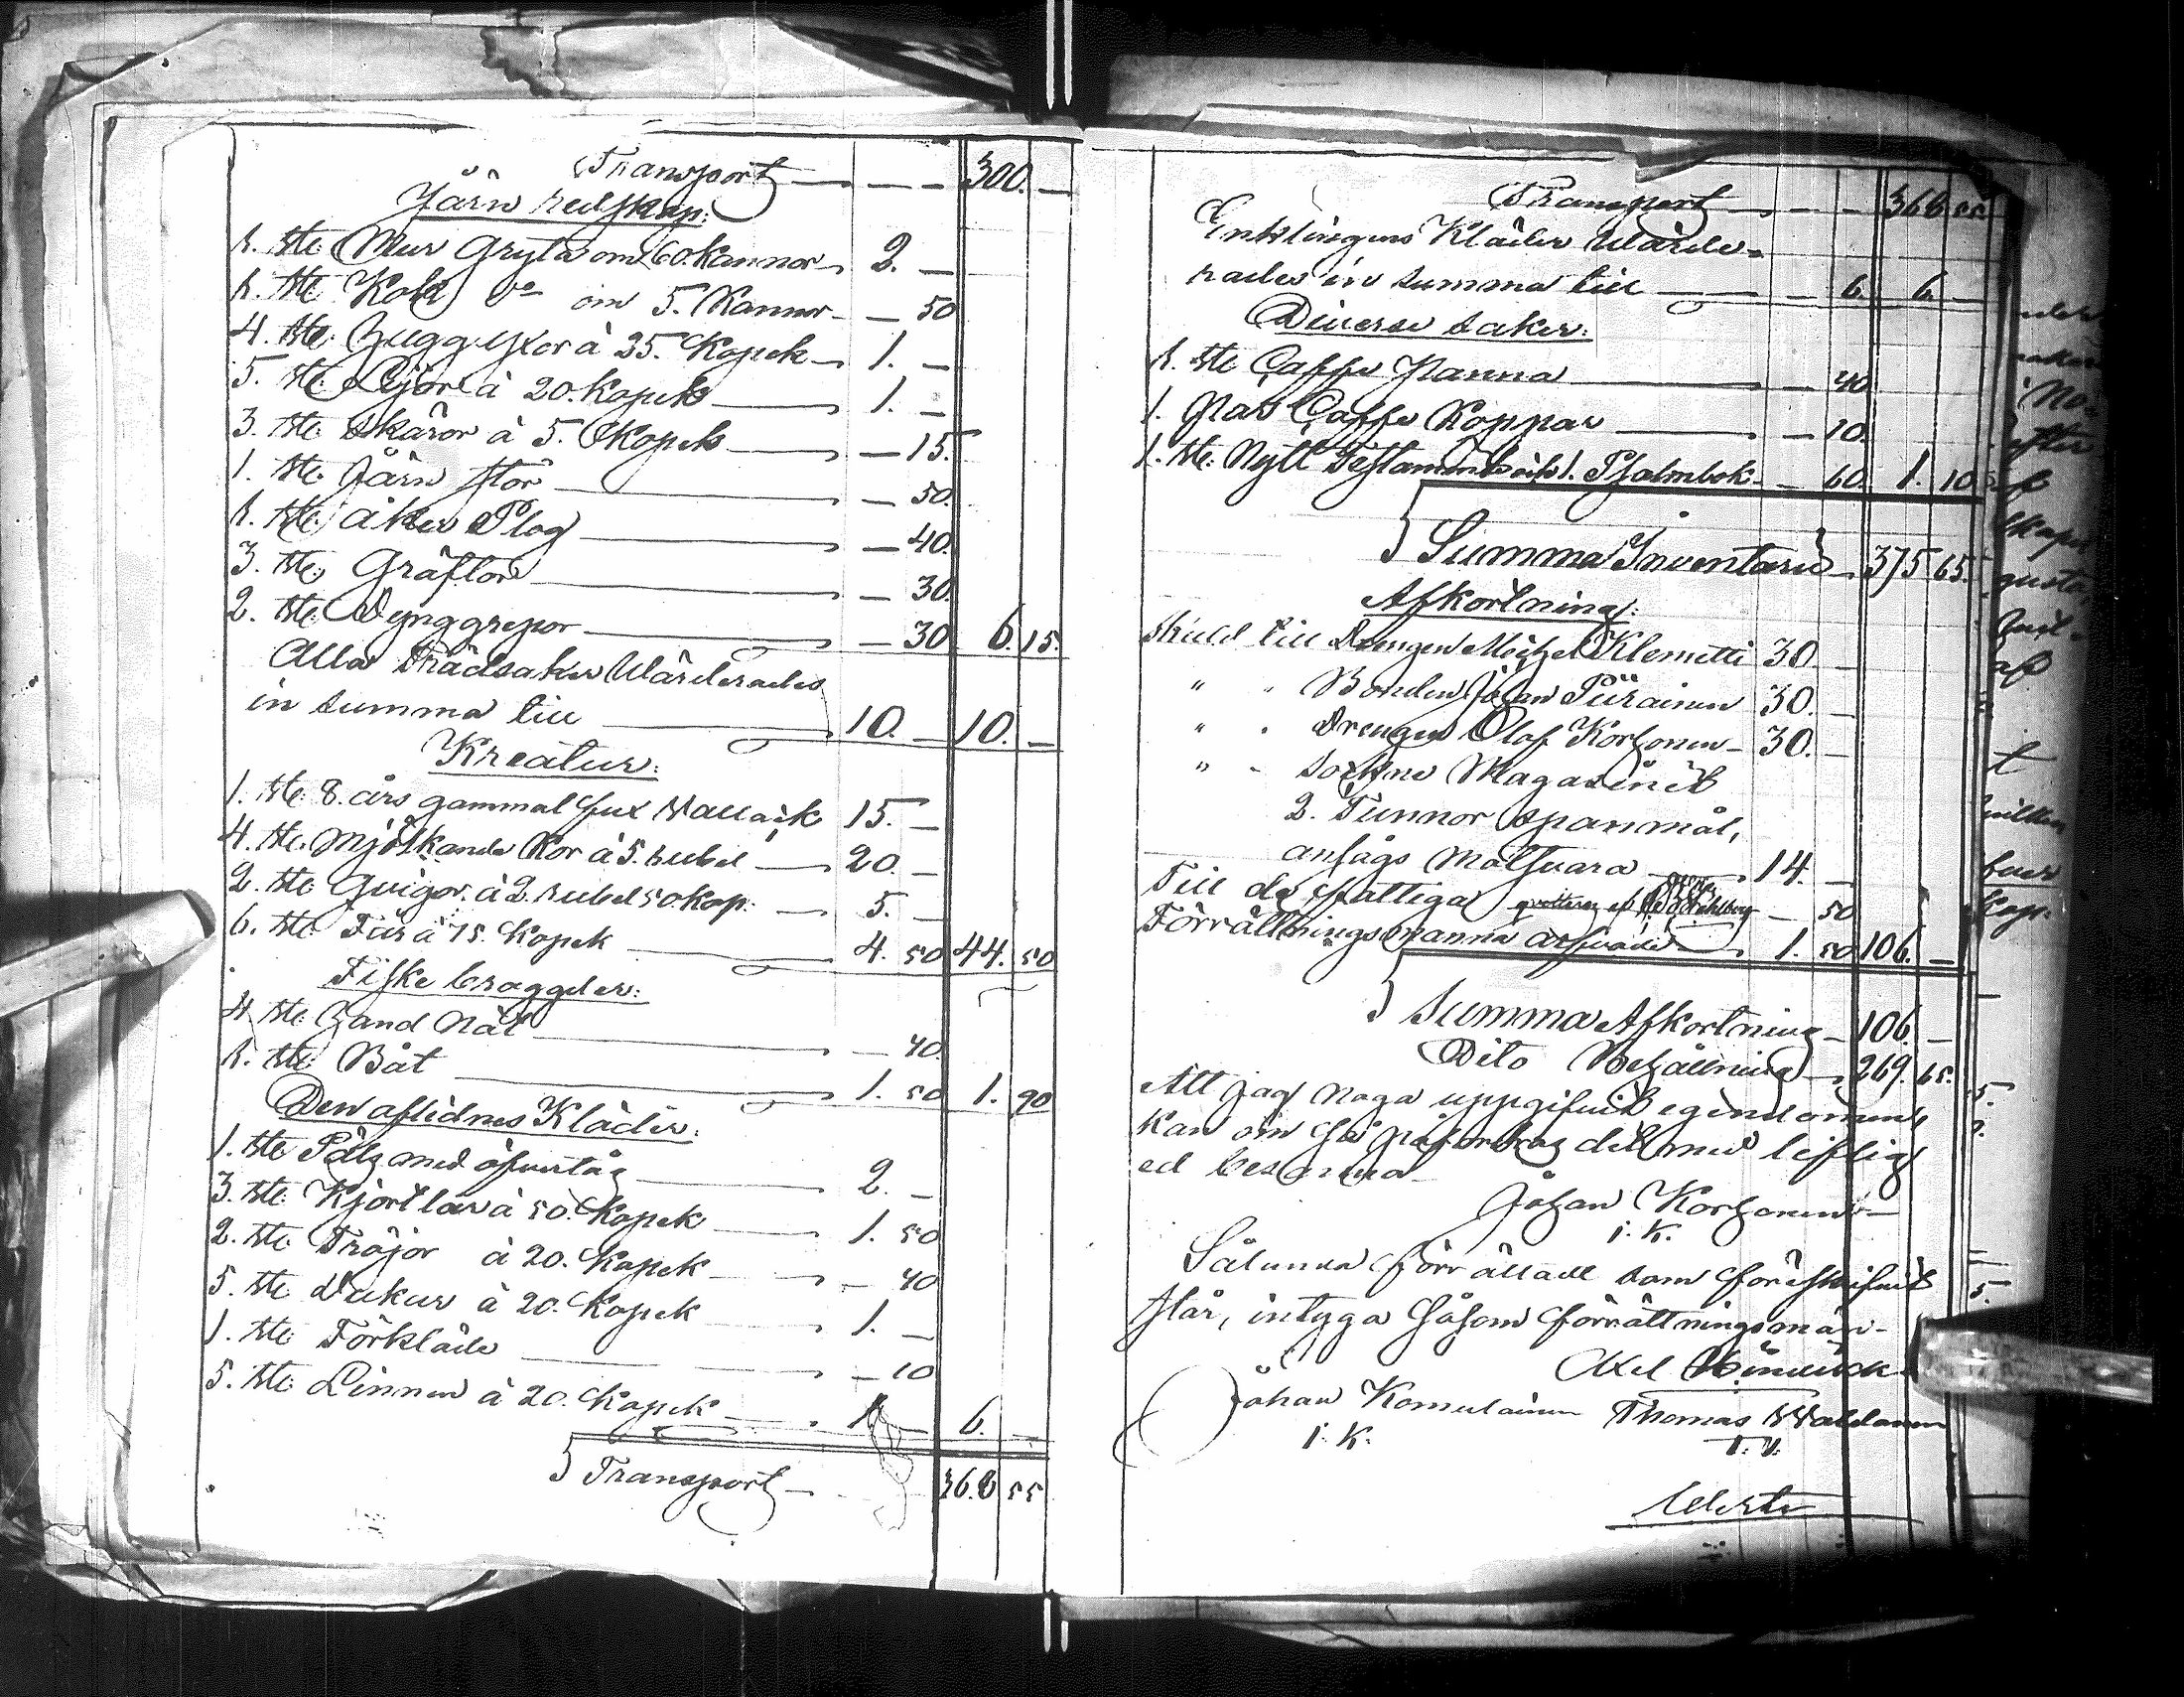 Transport — — — 300. —
Järn redskap:
1. st: Mur Gryta om 60. Kannor — 2. —
1. st: Kok do om 5. Kannor — — 50
4. st: Hugg Yxor à 25. Kopek — 1. —
5. st: Lijor à 20. Kopek — 1. —
3. st: Skäror à 5. Kopek — — 15.
1. st: Järn stör — — 50.
1. st: åker Plog — — 40.
3. st: Gräftor — — 30.
2. st: Dynggrepor — — 30 6. 15.
Alla Trädsaker Wärderades
in summa till — 10. — 10. —
Kreatur:
1. st: 8. års gammal fux Wallack 15. —
4. st: Mjölkande Kor à 5. rubel — 20. —
2. st: Qvigor à 2. rubel 50. kop: — 5. —
6. st: Får à 75. Kopek — 4. 50 44. 50
Fiske braggder:
4. st: Hand Nät — — 40.
1. st: Båt — 1. 50 1. 90
Den aflidnes Kläder:
1. st: Päls med öfvertåg — 2. —
3. st: Kjortlar à 50. Kopek — 1. 50
2. st: Tröjor à 20. Kopek — — 40
5. st: Dukar à 20. Kopek — 1. —
1. st: Förkläde — — 10
5. st: Linnen à 20. Kopek — 1. — 6. —
Transport — 368 55
Transport — — — 368 55
Enklingens Kläder Wärde-
rades in summa till — — 6. 6. —
Diverse saker:
1. st: Caffe Panna — — 40.
1. Par Caffe Koppar — — 10.
1. st: Nytt Testamente och 1. Psalmbok — — 60. 1. 10.
Summa Inventarii — 375 65.
Afkortning:
Skuld till Drengen Michel Klemetti 30. —
" " Bonden Johan Piirainen 30. —
" " Drengen Olof Korhonen — 30. —
" " sockne Magasinet
2. Tunnor spanmål,
ansågs motsvara — 14. —
Till de fattiga qvitteras af — 50
Förrättningsmanna arfvode — 1. 50 106. —
Summa Afkortning — 106. —
Dito Behållning — 269. 65.
Att jag noga uppgifvit egendomen,
kan om så påfordras det med liflig
ed besanna —
Johan Korhonen —
i. K.
Sålunda förrättadt som föreskrifvit
står, intyga såsom förrättningsmän —
Axel
Johan Komulainen Thomas
i. K.